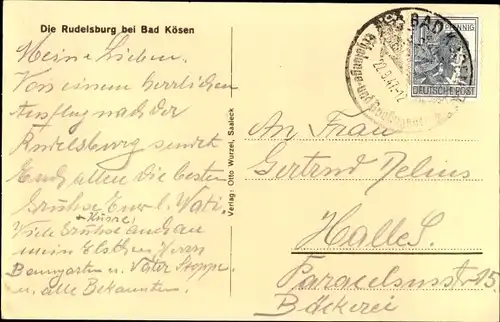 Die Rudelsburg bei Bad Kösen
Meine Lieben.
Von einem herrlichen
Ausflug nach der
Rudelsburg sendet
Euch allen die besten
Grüße Euer l. Vati,
+ Küsse
Viele Grüsse auch an
mein Herrn
Baumgarten u. Vater
u. alle Bekannten.
Verlag: Otto Wurzel, Saaleck
BAD KÖSEN
22.9.47-12
PFENNIG
DEUTSCHE POST
An Frau
Gertrud Delius
Halle S.
Paracelsusstr. 15
Bäckerei